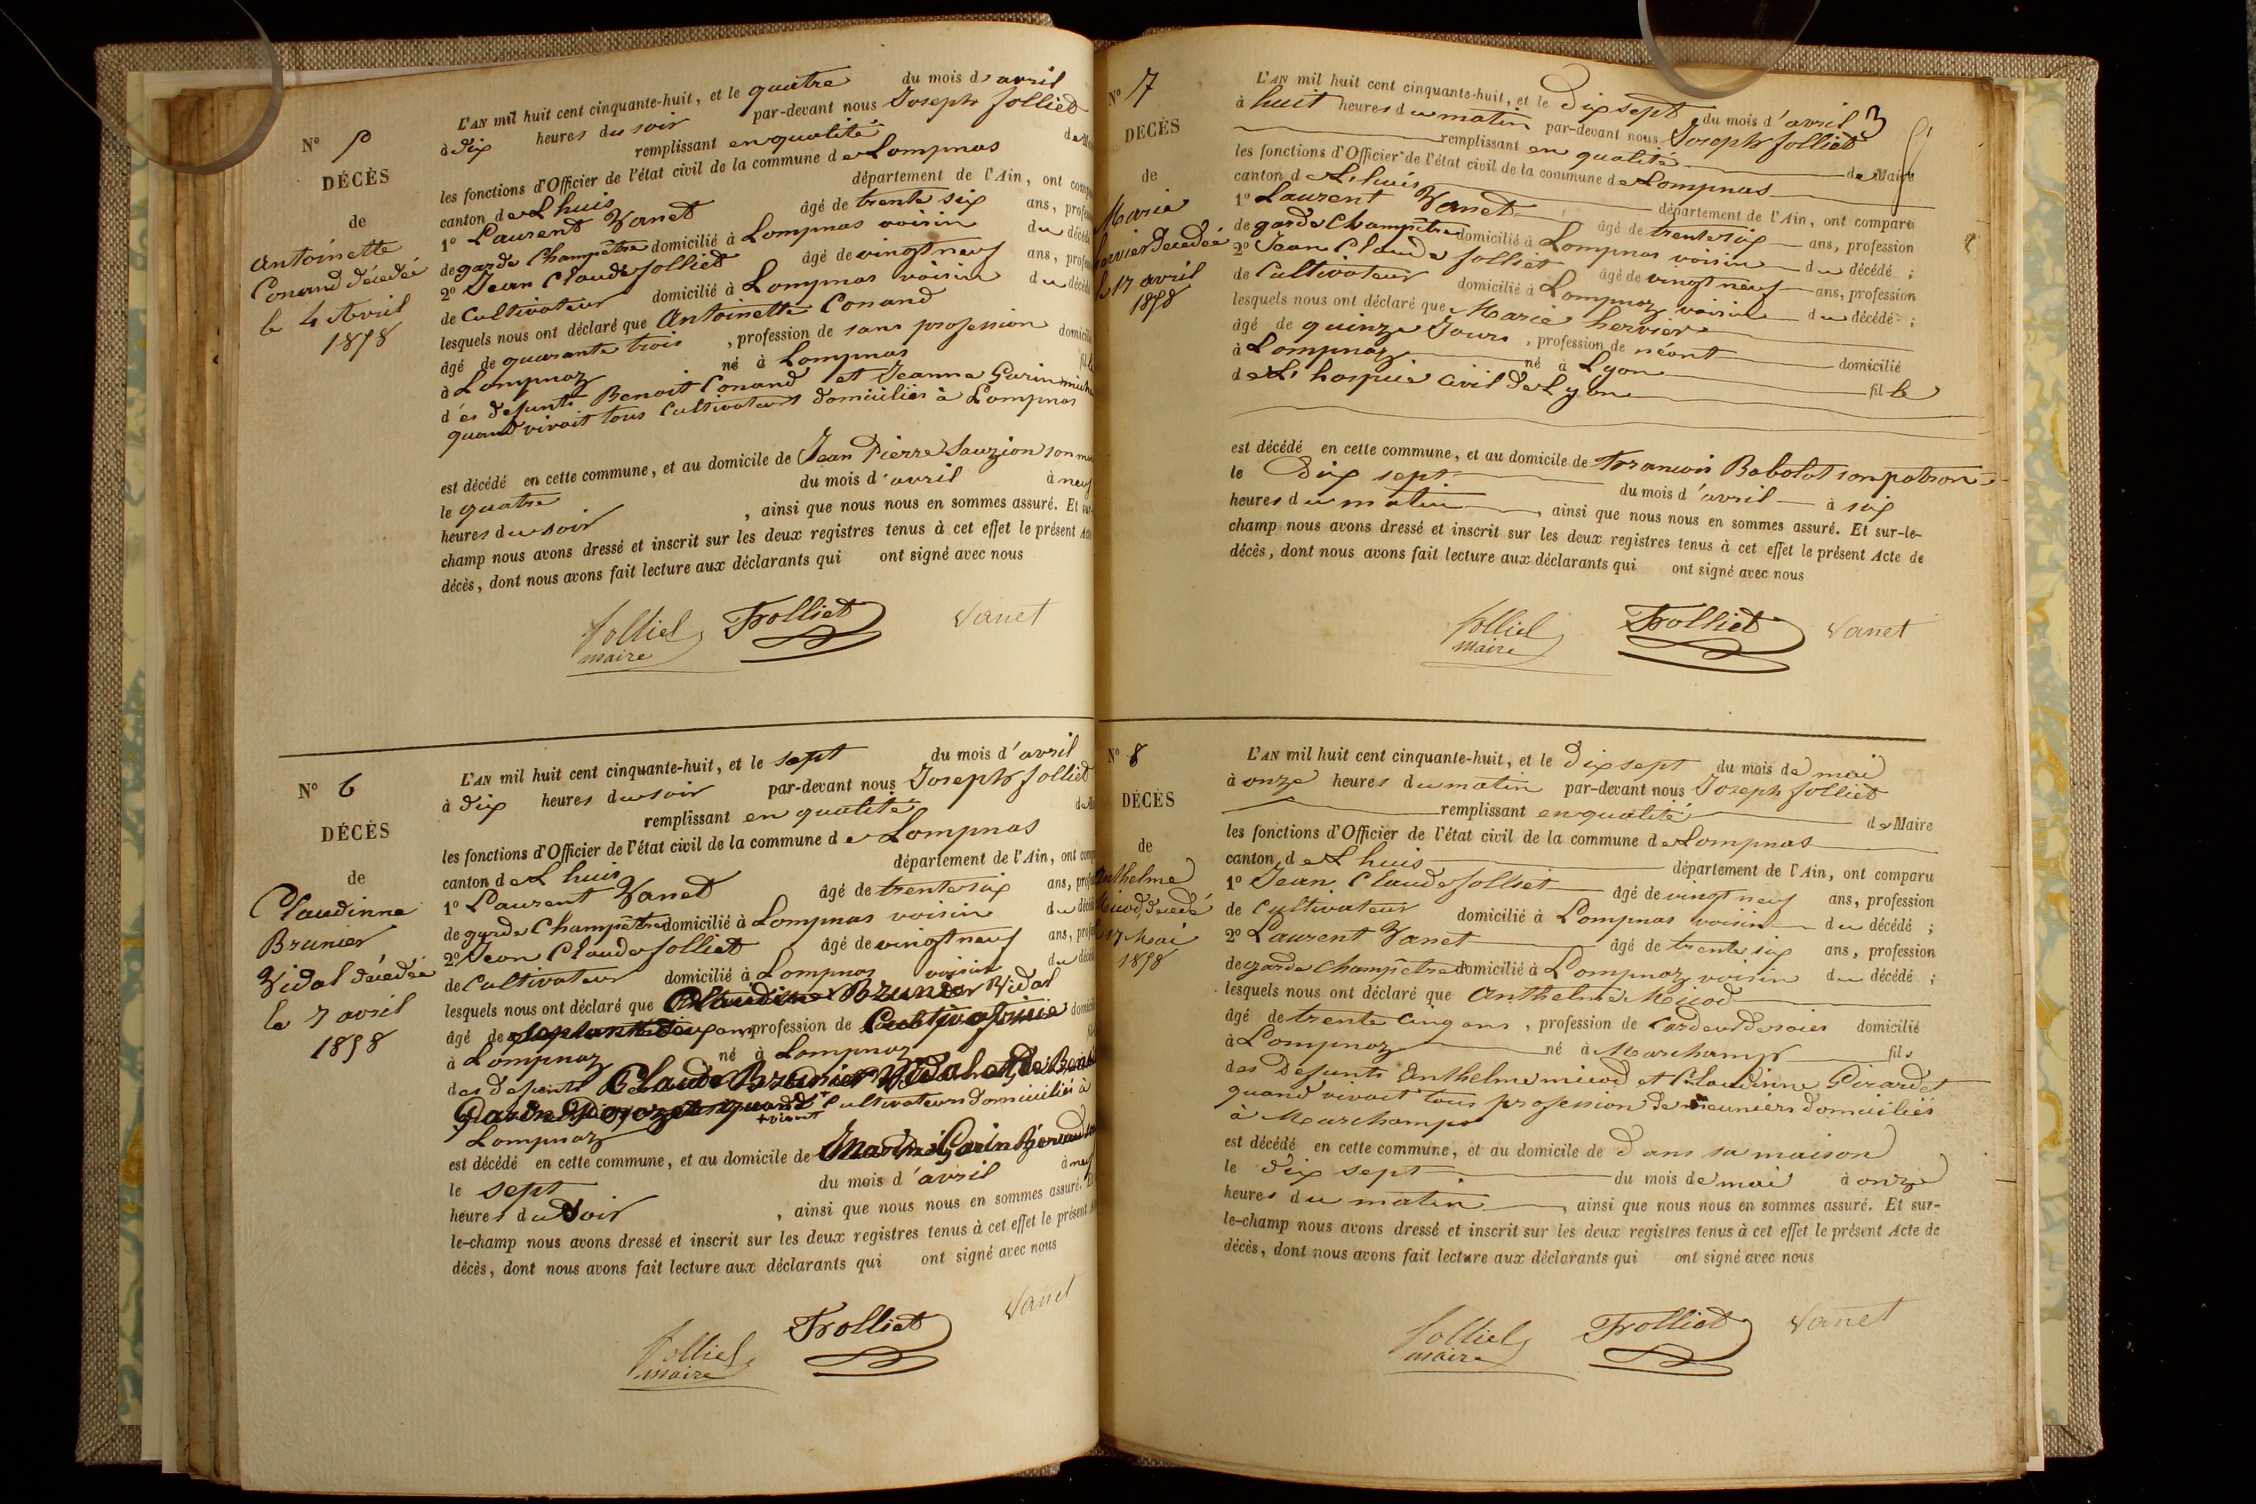 N° 5
DÉCÈS
de
Antoinette
Conand décédée
le 4 Avril
1858
L'AN mil huit cent cinquante-huit, et le quatre du mois d'avril
à dix heures du soir par-devant nous Joseph Jolliet
remplissant en qualité de
les fonctions d'Officier de l'état civil de la commune de Lompnas
canton de Lhuis département de l'Ain, ont
1° Laurent Vanet âgé de trente six ans,
de garde Champêtre domicilié à Lompnas voisin du décédé
2° Jean Claude Jolliet âgé de vingt neuf ans,
de Cultivateur domicilié à Lompnas voisin du
lesquels nous ont déclaré que Antoinette Conand
âgé de quarante trois , profession de sans profession
à Lompnaz né à Lompnas
d'es defunts Benoit Conand et Jeanne Garin
quand vivait tous Cultivateurs domiciliés à Lompnas
est décédé en cette commune, et au domicile de Jean Pierre Sauzion son
le quatre du mois d'avril à neuf
heures du soir , ainsi que nous nous en sommes assuré. Et sur-
champ nous avons dressé et inscrit sur les deux registres tenus à cet effet le présent Acte
décès, dont nous avons fait lecture aux déclarants qui ont signé avec nous
Jolliet Trolliet Vanet
maire
N° 6
DÉCÈS
de
Claudinne
Brunier
Vidal décédée
le 7 avril
1858
L'AN mil huit cent cinquante-huit, et le sept du mois d'avril
à dix heures du soir par-devant nous Joseph Jolliet
remplissant en qualité de
les fonctions d'Officier de l'état civil de la commune de Lompnas
canton de Lhuis département de l'Ain, ont
1° Laurent Vanet âgé de trente six ans,
de garde Champêtre domicilié à Lompnas voisin du
2° Jean Claude Jolliet âgé de vingt neuf ans,
de Cultivateur domicilié à Lompnaz voisin du
lesquels nous ont déclaré que Claudine Brunier Vidal
âgé de profession de
à Lompnaz né à Lompnaz
des defunts Claude Brunier Vidal et de
Garin quand Cultivateurs domiciliés à
Lompnaz
est décédé en cette commune, et au domicile de Garin
le sept du mois d'avril à neuf
heures du soir , ainsi que nous nous en sommes assuré. Et
le-champ nous avons dressé et inscrit sur les deux registres tenus à cet effet le présent
décès, dont nous avons fait lecture aux déclarants qui ont signé avec nous
Jolliet Trolliet Vanet
maire
N° 7
DÉCÈS
de
Marie
hervier décédée
le 17 avril
1858
L'AN mil huit cent cinquante-huit, et le Dix sept du mois d'avril
à huit heures du matin par-devant nous Joseph Jolliet
remplissant en qualité de Maire
les fonctions d'Officier de l'état civil de la commune de Lompnas
canton de Lhuis département de l'Ain, ont comparu
1° Laurent Vanet âgé de trente six ans, profession
de garde Champêtre domicilié à Lompnas voisin du décédé ;
2° Jean Claude Jolliet âgé de vingt neuf ans, profession
de Cultivateur domicilié à Lompnaz voisin du décédé ;
lesquels nous ont déclaré que Marie hervier
âgé de quinze Jours , profession de néant domicilié
à Lompnaz né à Lyon fille
de L'hospice Civil de Lyon
est décédé en cette commune, et au domicile de Francois Babolat son patron
le Dix sept du mois d'avril à six
heures du matin , ainsi que nous nous en sommes assuré. Et sur-le-
champ nous avons dressé et inscrit sur les deux registres tenus à cet effet le présent Acte de
décès, dont nous avons fait lecture aux déclarants qui ont signé avec nous
Jolliet Trolliet Vanet
maire
N° 8
DÉCÈS
de
Anthelme
Micod décedé
17 Mai
1858
L'AN mil huit cent cinquante-huit, et le Dix sept du mois de mai
à onze heures du matin par-devant nous Joseph Jolliet
remplissant en qualité de Maire
les fonctions d'Officier de l'état civil de la commune de Lompnas
canton de Lhuis département de l'Ain, ont comparu
1° Jean Claude Jolliet âgé de vingt neuf ans, profession
de Cultivateur domicilié à Lompnas voisin du décédé ;
2° Laurent Vanet âgé de trente six ans, profession
de garde Champêtre domicilié à Lompnaz voisin du décédé ;
lesquels nous ont déclaré que Anthelme Micod
âgé de trente Cinq ans , profession de Cardeur de soies domicilié
à Lompnaz né à Marchamp fils
des Defunts Anthelme micod et Claudinne Girardet
quand vivait tous profession de meuniers domiciliés
à Marchamps
est décédé en cette commune, et au domicile de Dans sa maison
le dix sept du mois de mai à onze
heures du matin , ainsi que nous nous en sommes assuré. Et sur-
le-champ nous avons dressé et inscrit sur les deux registres tenus à cet effet le présent Acte de
décès, dont nous avons fait lecture aux déclarants qui ont signé avec nous
Jolliet Trolliet Vanet
maire